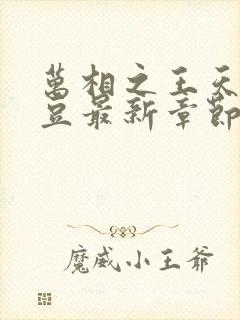 萬相之王天
豆最新章節
魔威小王爺